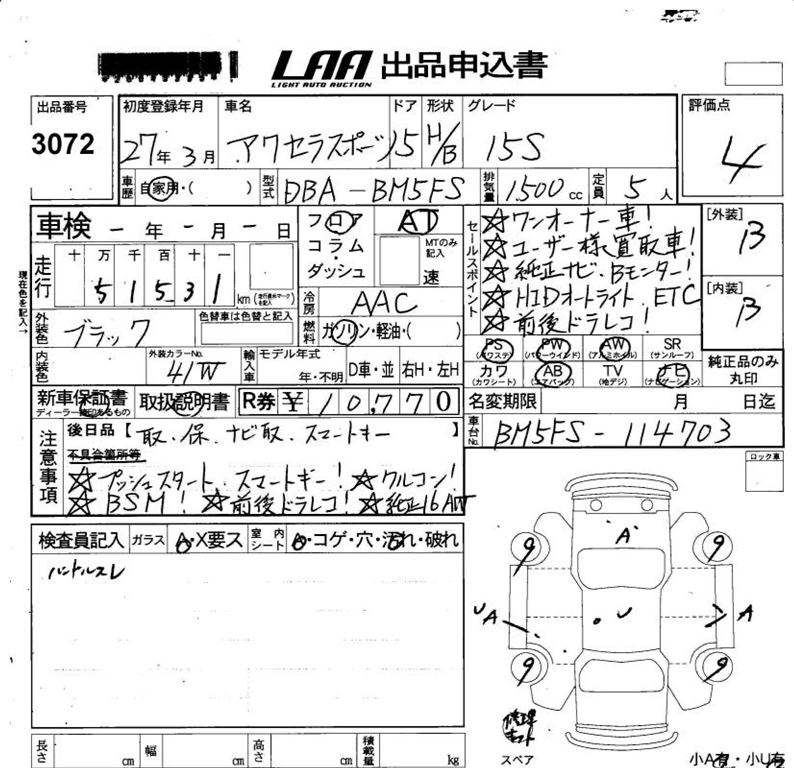 LAA 出品申込書
LIGHT AUTO AUCTION
出品番号 初度登録年月 車名 ドア 形状 グレード 評価点
3072 27年 3月 アクセラスポーツ 5 H/B 15S 4
車歴 自家用・( ) 型式 DBA-BM5FS 排気量 1500cc 定員 5人
車検 ー年ー月ー日 フロア AT セールスポイント ☆ワンオーナー車! [外装] B
コラム・ MTのみ記入 ☆ユーザー様買取車!
走行 十 万 千 百 十 一 ダッシュ 速 ☆純正ナビ、Bモニター!
51531 km (走行表示マークを記入) 冷房 AAC ☆HIDオートライト、ETC [内装] B
現在色を記入→
外装色 ブラック 色替車は色替と記入 燃料 ガソリン・軽油・( ) ☆前後ドラレコ!
PS (パワステ) PW (パワーウインド) AW (アルミホイル) SR (サンルーフ)
内装色 外装カラーNo. 41W 輸入車 モデル年式 年・不明 D車・並 右H・左H カワ (カワシート) AB (エアバッグ) TV (地デジ) ナビ (ナビゲーション) 純正品のみ丸印
新車保証書 ディーラー捺印あるもの 取扱説明書 R券 ¥10,770 名変期限 月 日迄
注意事項 後日品【取、保、ナビ取、スマートキー】 車台No. BM5FS-114703
不具合箇所等 ロック車
☆プッシュスタート、スマートキー! ☆クルコン!
☆BSM! ☆前後ドラレコ! ☆純正16AW
検査員記入 ガラス A・X要ス 室内シート ・コゲ・穴・汚れ・破れ
ハンドルスレ
A
9 9
UA U A
9 9
修理キット
スペア
長さ cm 幅 cm 高さ cm 積載量 kg 小A有・小U有